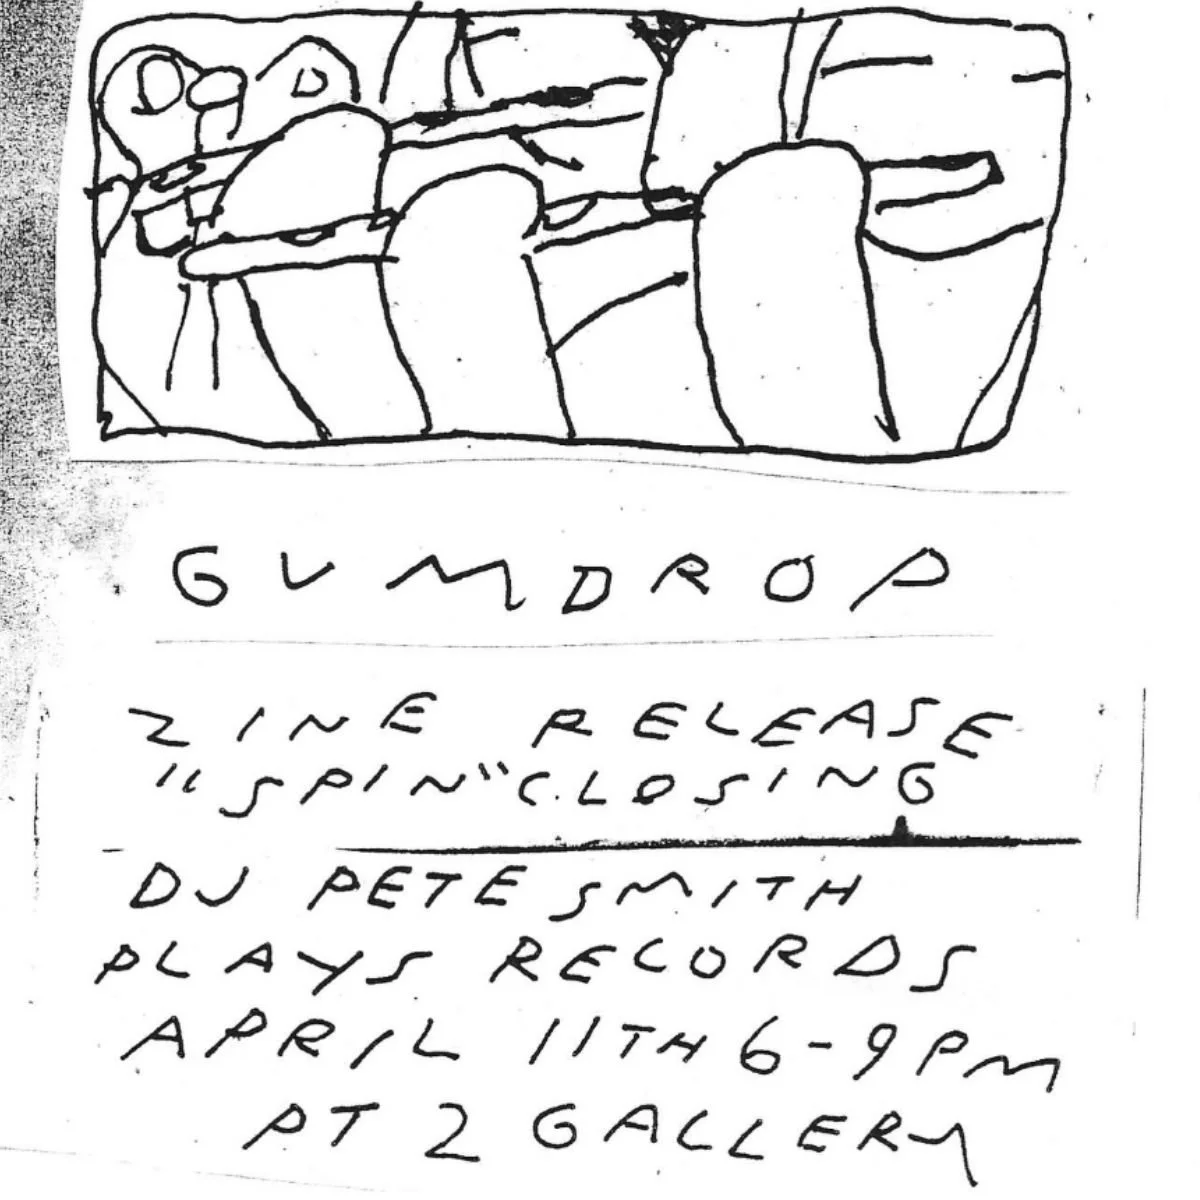 D D
GUMDROP
ZINE RELEASE
"SPIN" CLOSING
DJ PETE SMITH
PLAYS RECORDS
APRIL 11TH 6-9PM
PT 2 GALLERY